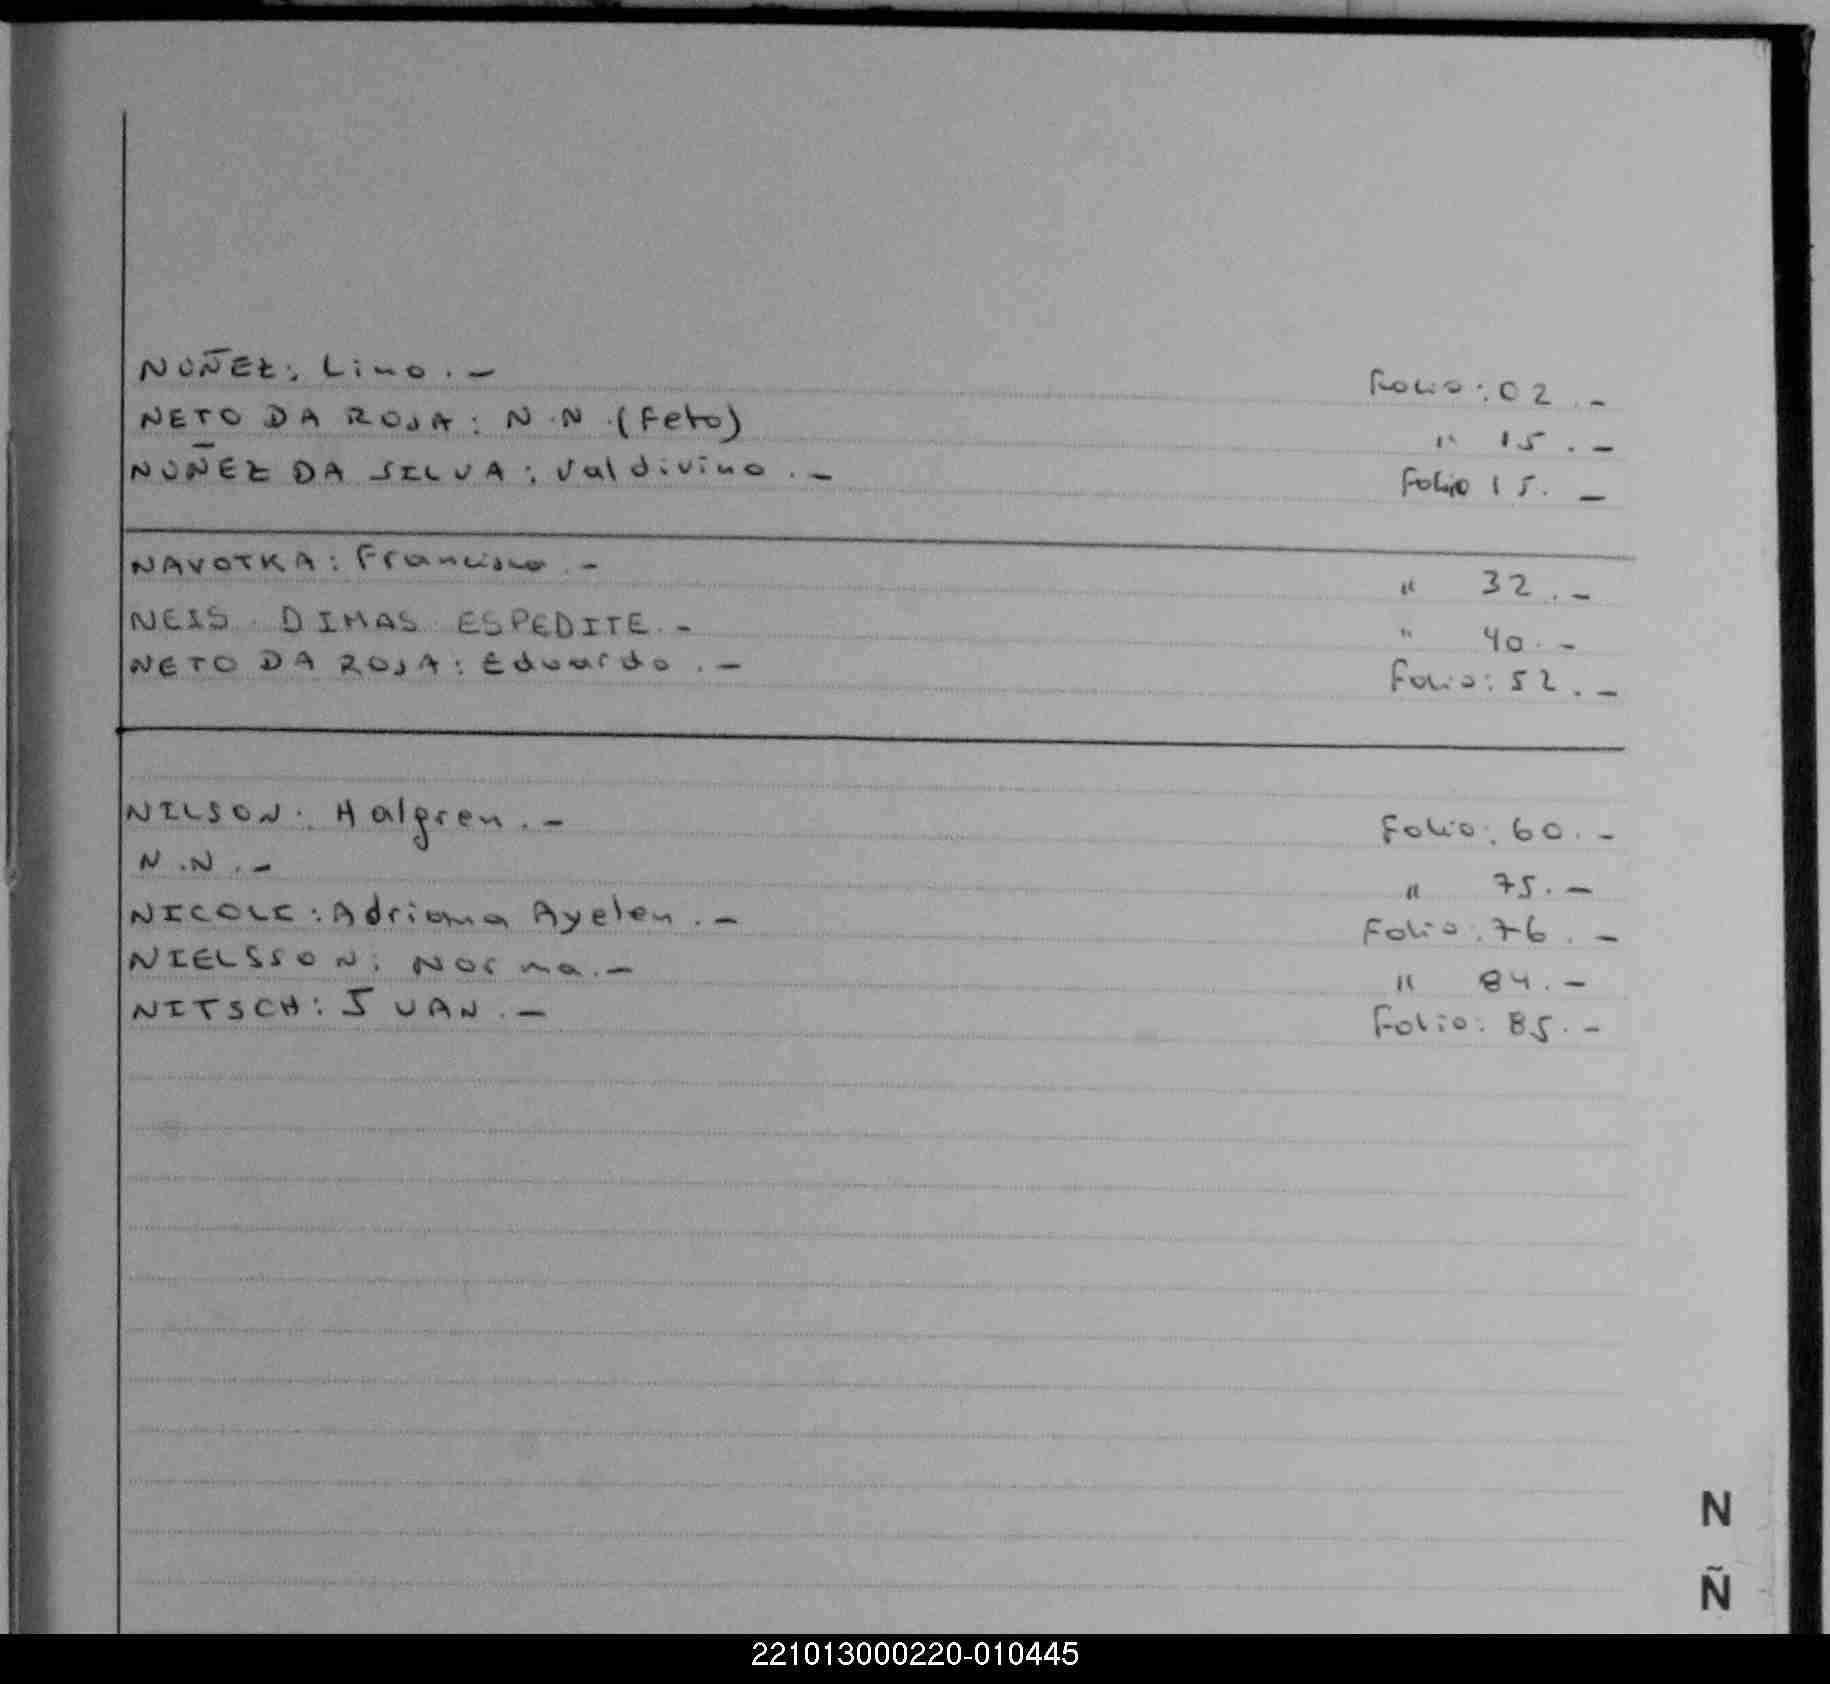 NUÑEZ: Lino.- Folio: 02.-
NETO DA ROSA: N.N.(Feto) " 15.-
NUÑEZ DA SILVA: Valdivino.- Folio 15.-
NAVOTKA: Francisco.- " 32.-
NEIS DIMAS ESPEDITE.- " 40.-
NETO DA ROSA: Eduardo.- Folio: 52.-
NILSON: Halgren.- Folio: 60.-
N.N.- " 75.-
NICOLE: Adriana Ayelen.- Folio: 76.-
NIELSSON: Norma.- " 84.-
NITSCH: JUAN.- Folio: 85.-
N
Ñ
221013000220-010445